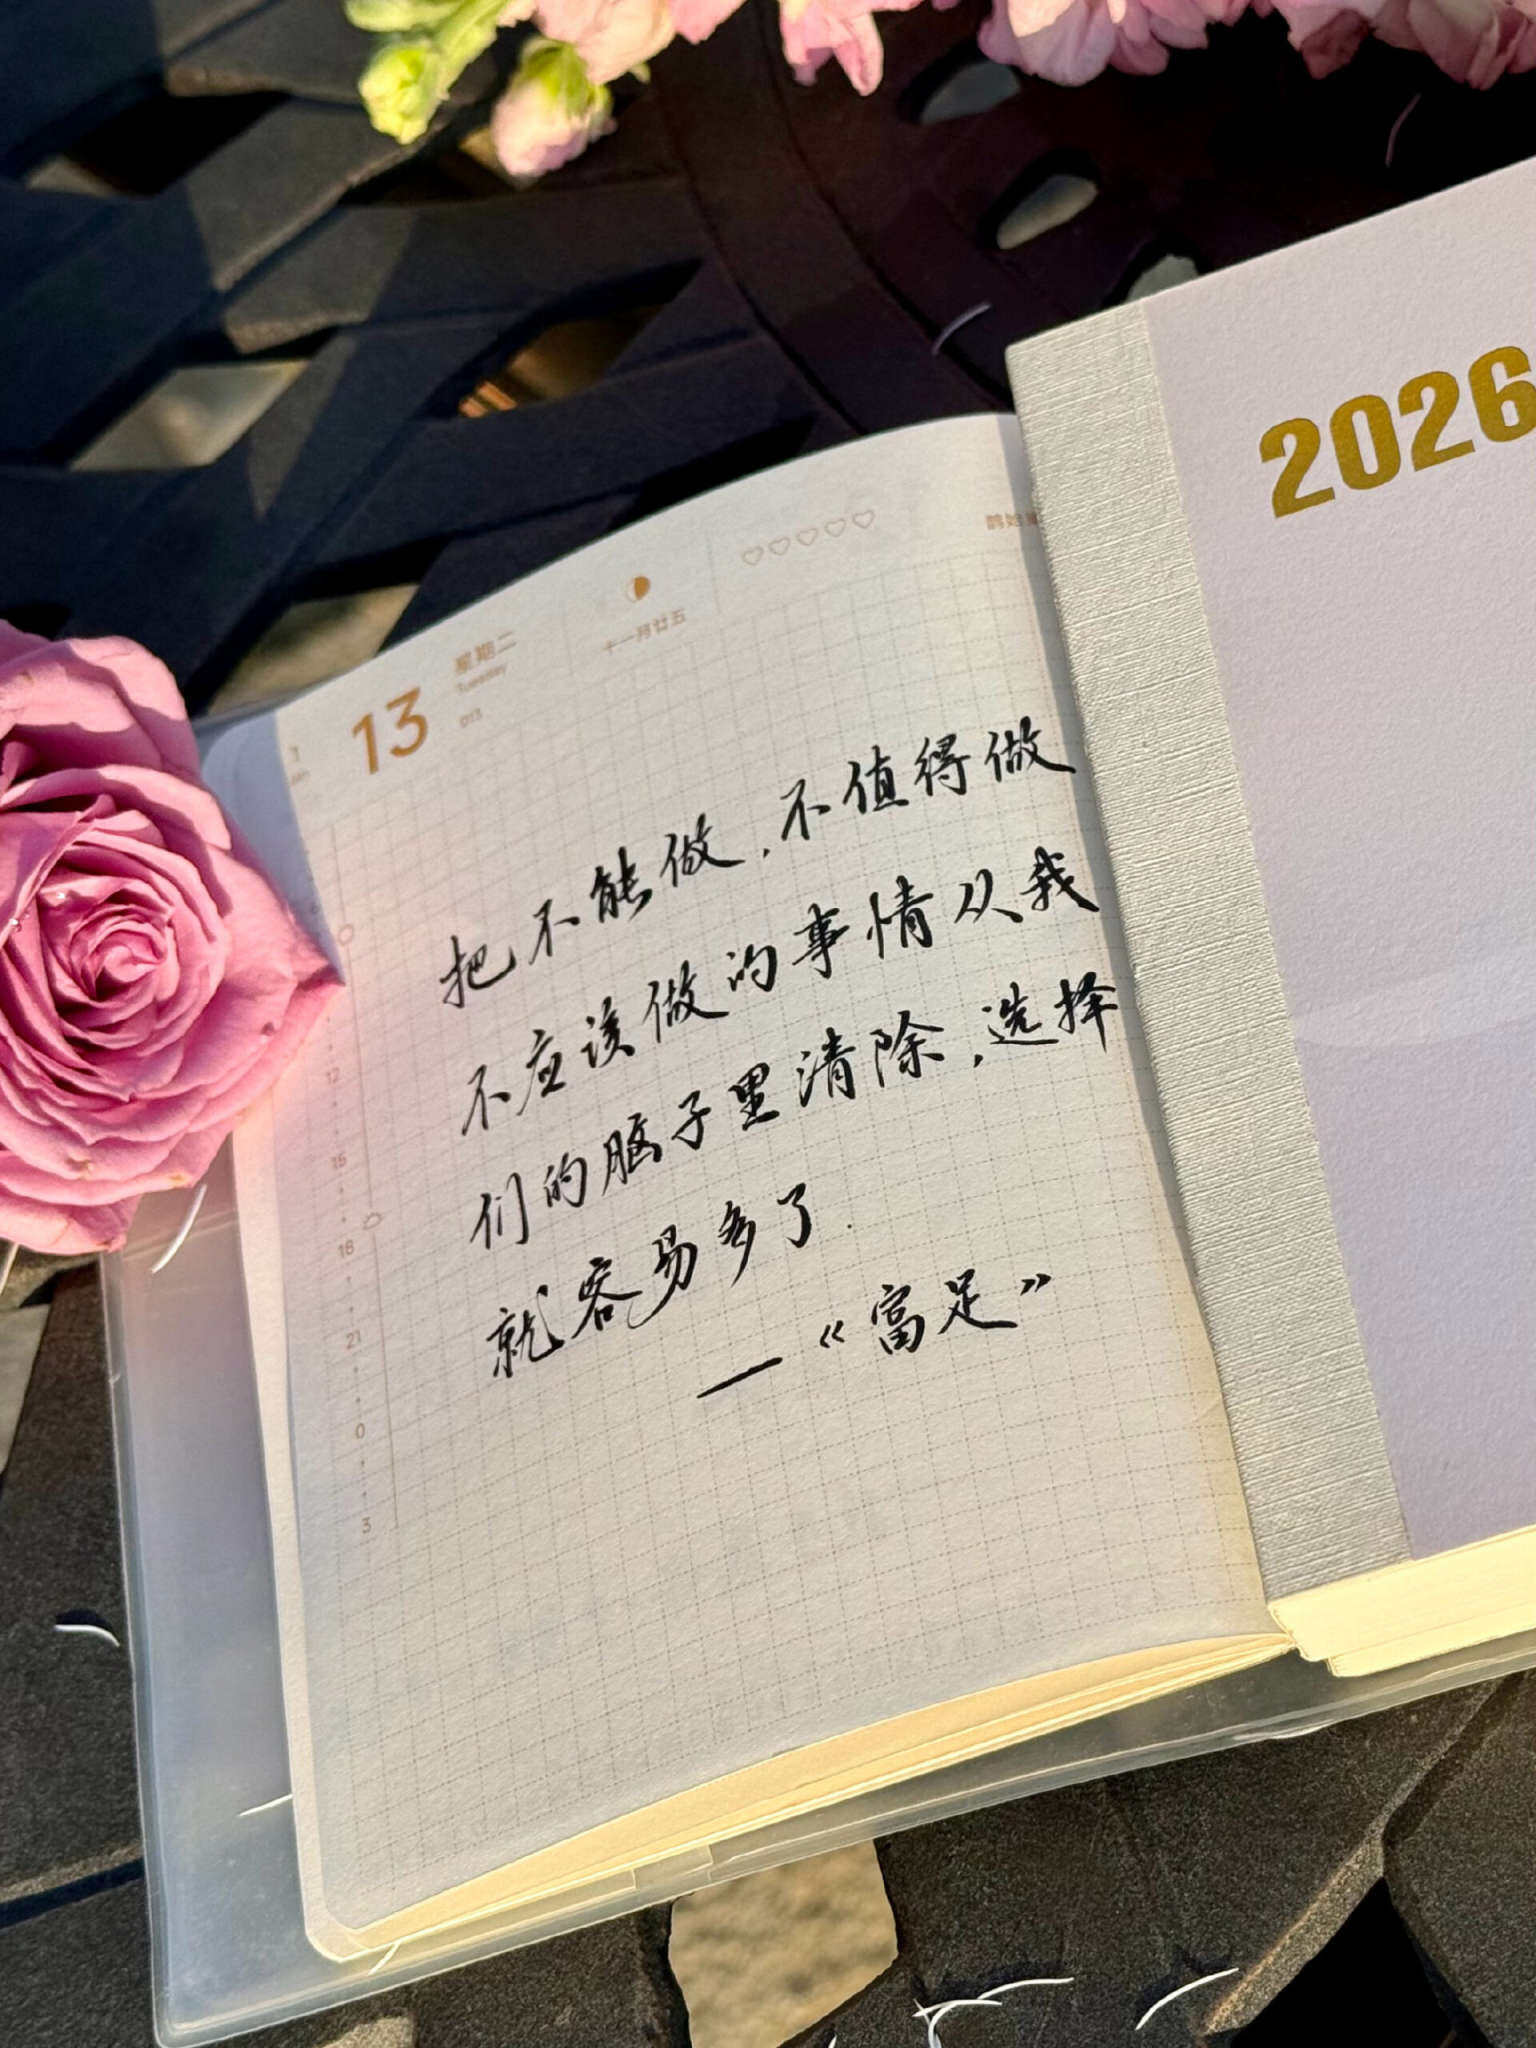 2026
13
星期二
Tuesday
013
十一月廿五
1
把不能做,不值得做
不应该做的事情从我
们的脑子里清除,选择
就容易多了.
—《富足》
12
15
18
21
0
3